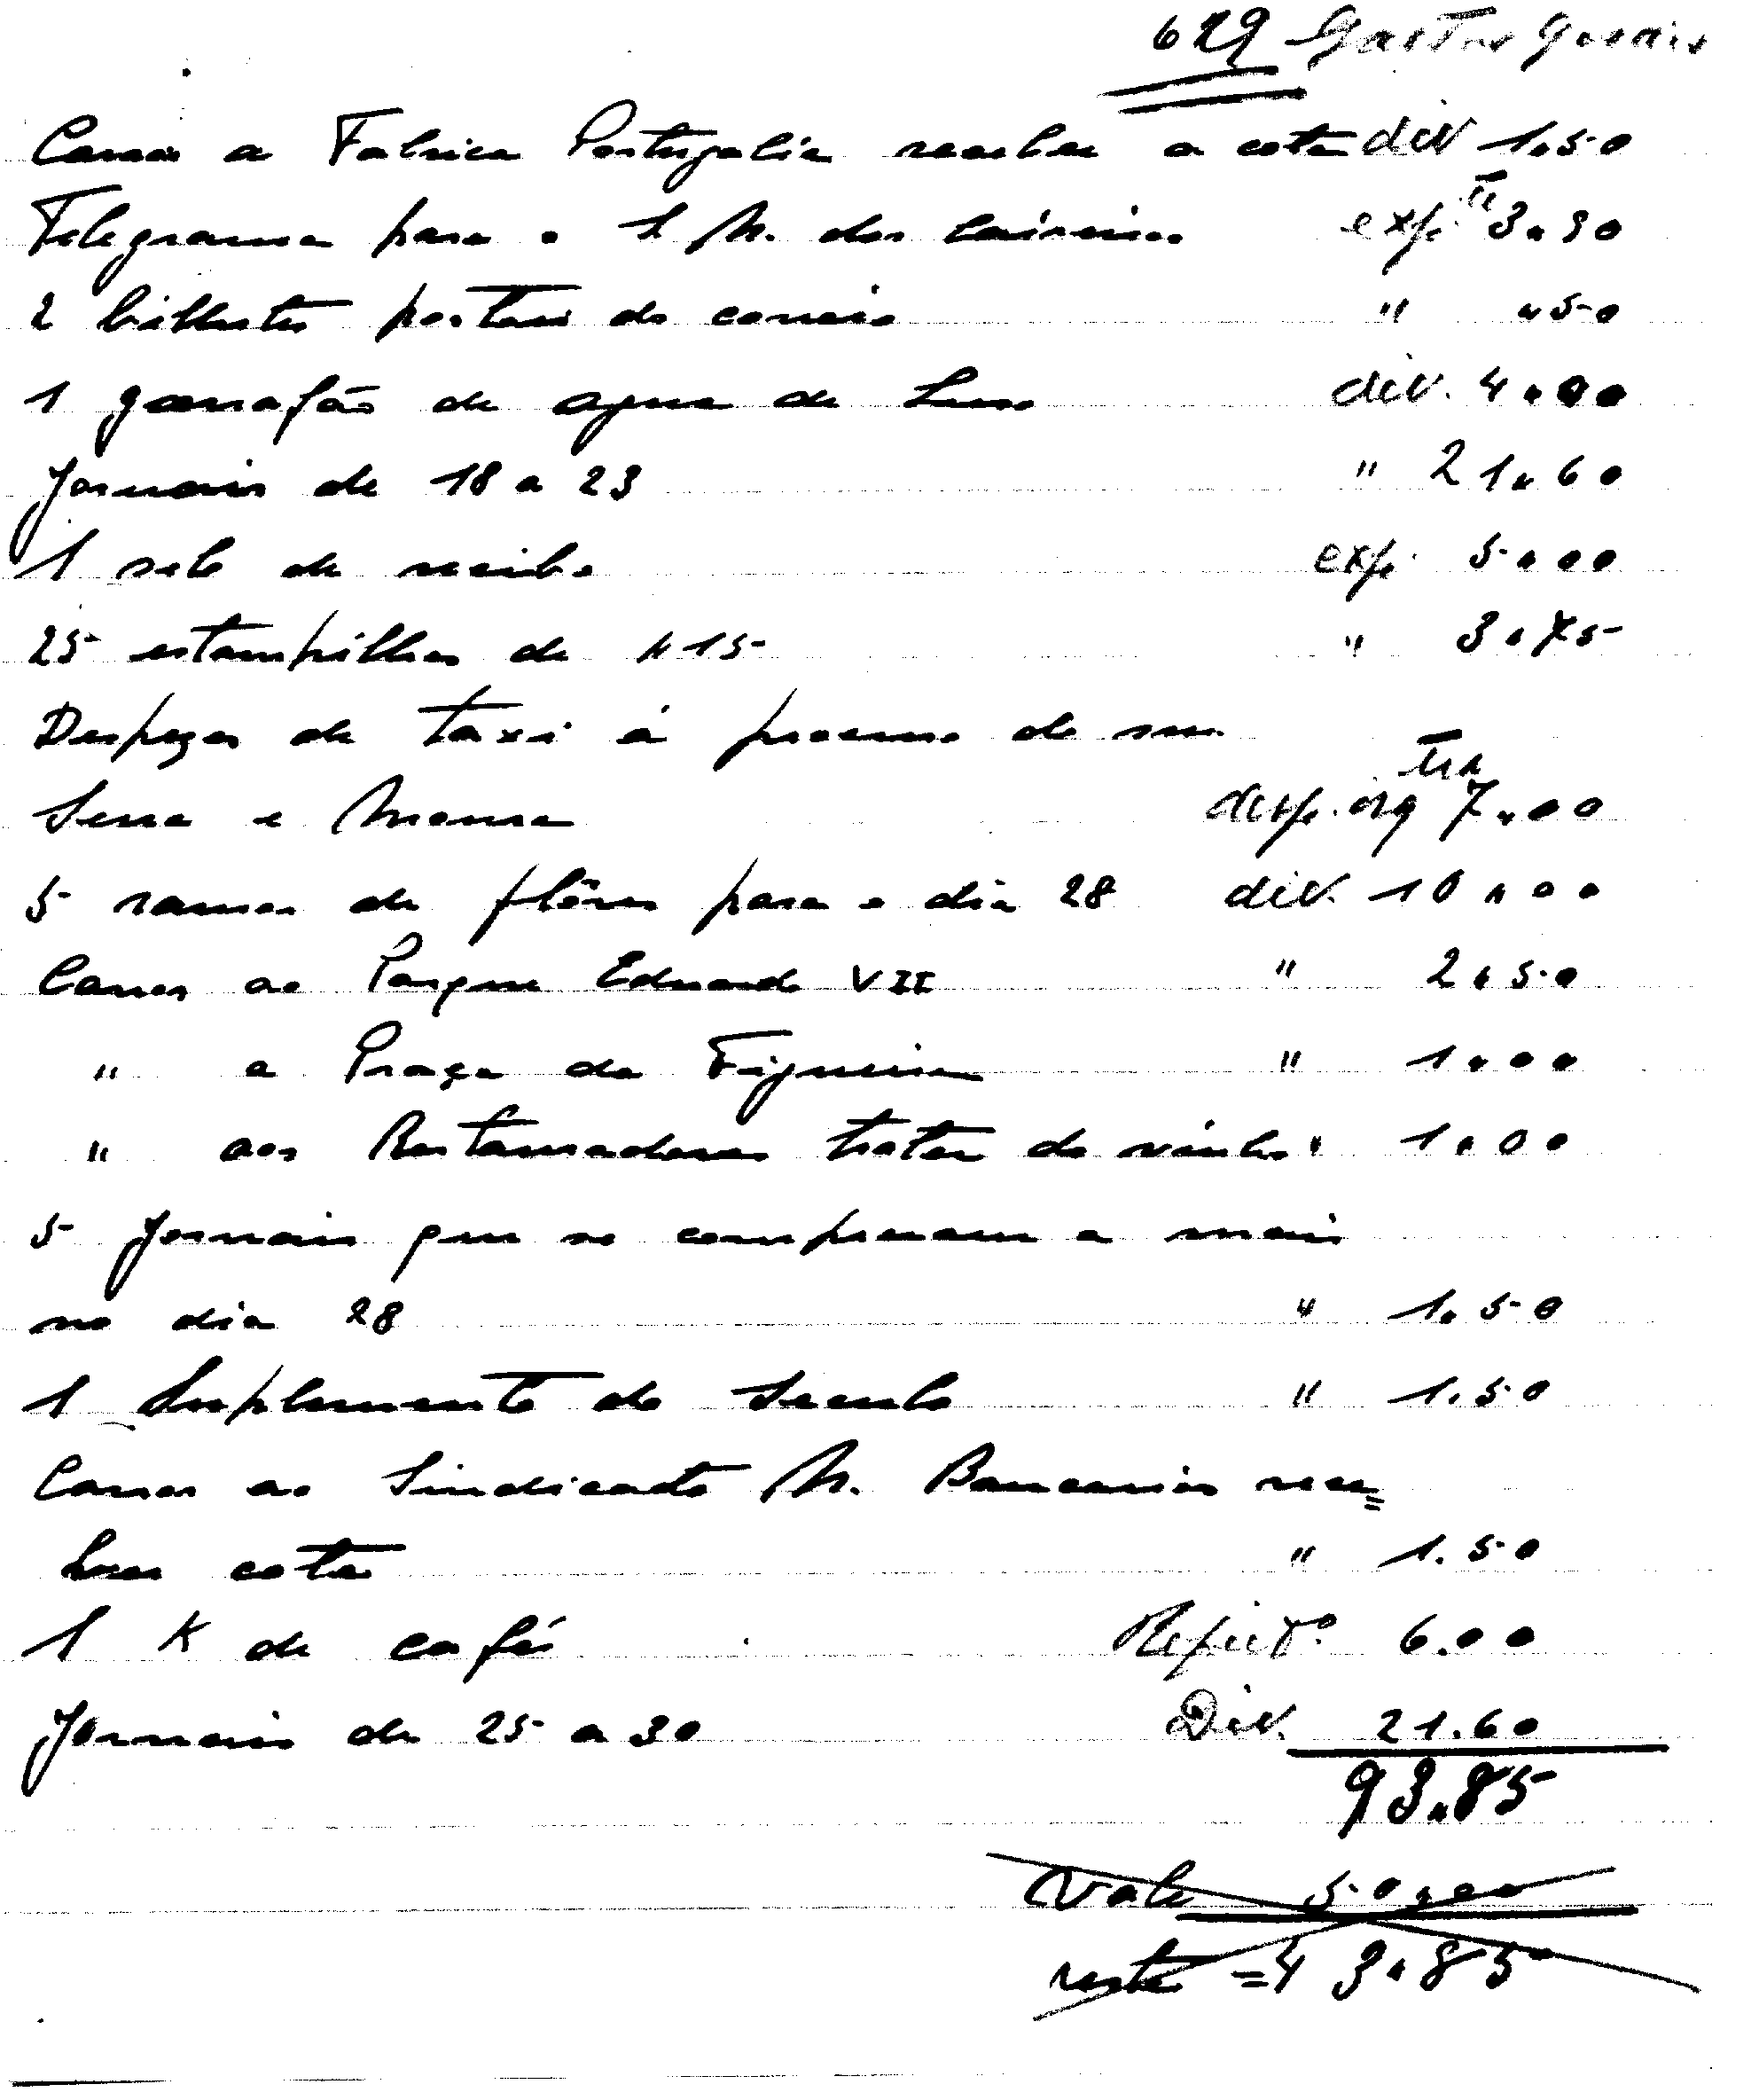 629 Gastos Gerais
Carros a Fabrica Portugalia receber a cota div 1,50
Telegrama para o S. N. dos Caixeiros exp. 3,90
2 bilhetes postais do correio " "50
1 garrafão de agua de Luso div. 4"00
Jornais de 18 a 23 " 21"60
1 selo de recibo exp. 5"00
25 estampilhas de "15 " 3"75
Despezas de taxi á procura do snr.
Serra e Moura desp. org 7"00
5 ramos de flôres para o dia 28 div. 10"00
Carros ao Parque Eduardo VII " 2"50
" a Praça da Figueira " 1"00
" aos Restauradores tratar do vinho " 1"00
5 Jornais que se compraram a mais
no dia 28 " 1.50
1 Suplemento do Seculo " 1.50
Carros ao Sindicato N. Bancarios rece=
ber cota " 1.50
1 K de café Refeitº 6.00
Jornais de 25 a 30 Div. 21.60
93"85
Vale 50"00
resta =43"85